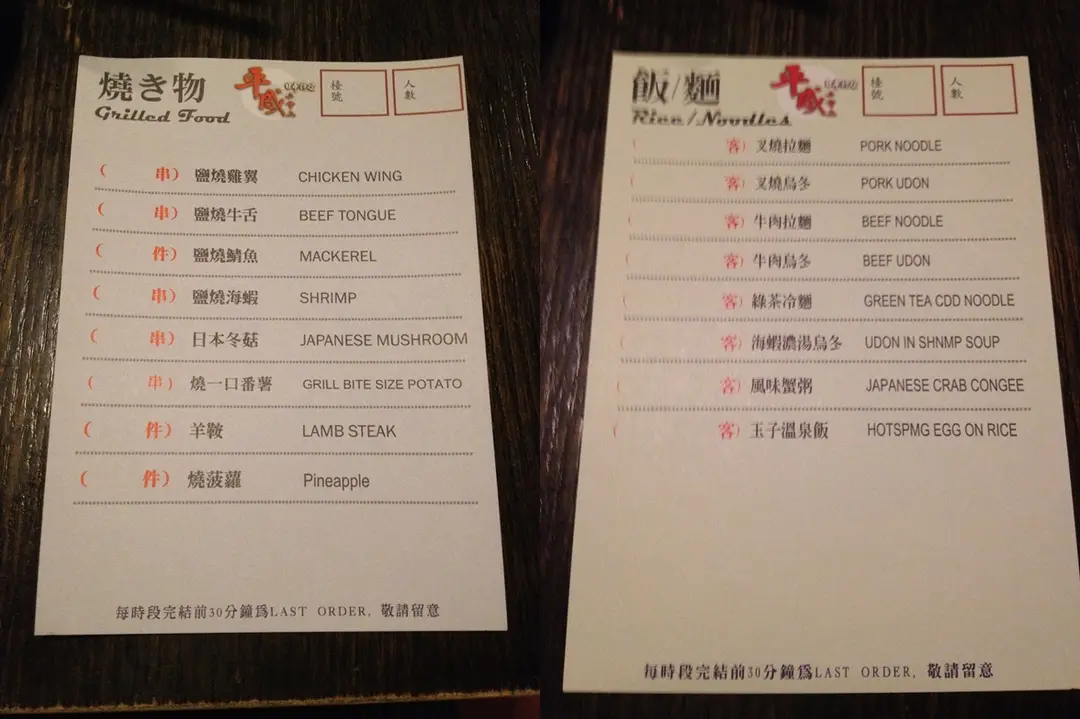 燒き物
Grilled Food
平成
檯號
人數
( 串) 鹽燒雞翼 CHICKEN WING
( 串) 鹽燒牛舌 BEEF TONGUE
( 件) 鹽燒鯖魚 MACKEREL
( 串) 鹽燒海蝦 SHRIMP
( 串) 日本冬菇 JAPANESE MUSHROOM
( 串) 燒一口番薯 GRILL BITE SIZE POTATO
( 件) 羊鞍 LAMB STEAK
( 件) 燒菠蘿 Pineapple
每時段完結前30分鐘爲LAST ORDER, 敬請留意
飯/麵
Rice/Noodles
平成
檯號
人數
( 客) 叉燒拉麵 PORK NOODLE
( 客) 叉燒烏冬 PORK UDON
( 客) 牛肉拉麵 BEEF NOODLE
( 客) 牛肉烏冬 BEEF UDON
( 客) 綠茶冷麵 GREEN TEA CDD NOODLE
( 客) 海蝦濃湯烏冬 UDON IN SHNMP SOUP
( 客) 風味蟹粥 JAPANESE CRAB CONGEE
( 客) 玉子溫泉飯 HOTSPMG EGG ON RICE
每時段完結前30分鐘爲LAST ORDER, 敬請留意